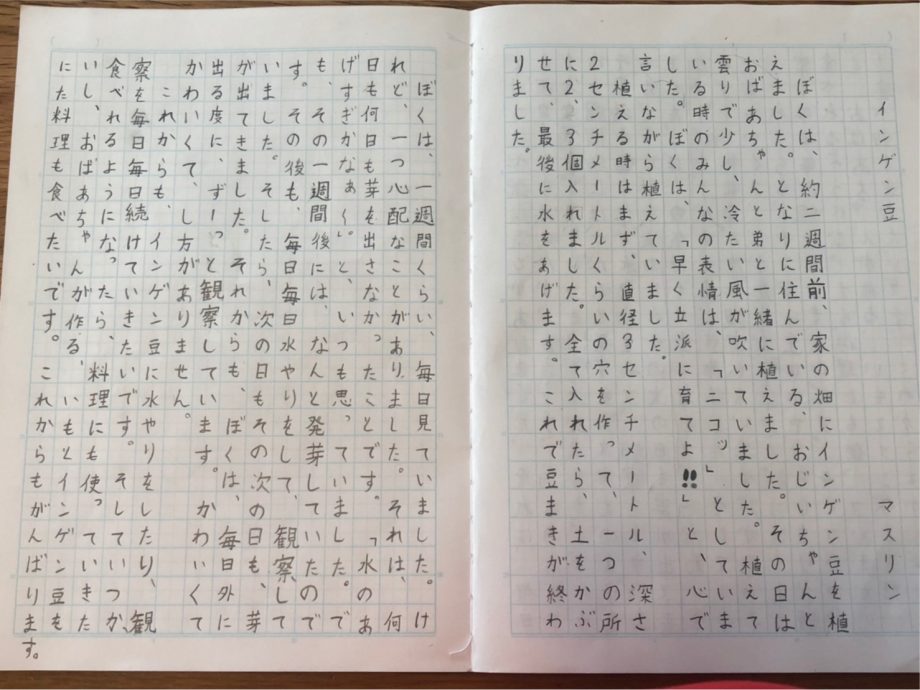 インゲン豆 マスリン
ぼくは、約二週間前、家の畑にインゲン豆を植
えました。となりに住んでいる、おじいちゃんと
おばあちゃんと弟と一緒に植えました。その日は
雲りで少し、冷たい風が吹いていました。植えて
いる時のみんなの表情は、「ニコッ」としていま
した。ぼくは、「早く立派に育てよ!!」と、心で
言いながら植えていました。
植える時はまず、直径3センチメートル、深さ
2センチメートルくらいの穴を作って、一つの所
に2、3個入れました。全て入れたら、土をかぶ
せて、最後に水をあげます。これで豆まきが終わ
りました。
ぼくは、一週間くらい、毎日見ていました。け
れど、一つ心配なことがありました。それは、何
日も何日も芽を出さなかったことです。「水のあ
げすぎかなぁ〜」と、いつも思っていました。で
も、その一週間後には、なんと発芽していたので
す。その後も、毎日毎日水やりをして、観察して
いました。そしたら、次の日もその次の日も、芽
が出てきました。それからも、ぼくは、毎日外に
出る度に、ずーっと観察しています。かわいくて
かわいくて、し方がありません。
これからも、インゲン豆に水やりをしたり、観
察を毎日毎日続けていきたいです。そしていつか、
食べれるようになったら、料理にも使っていきた
いし、おばあちゃんが作る、いもとインゲン豆も
にた料理も食べたいです。これからもがんばりま
す。